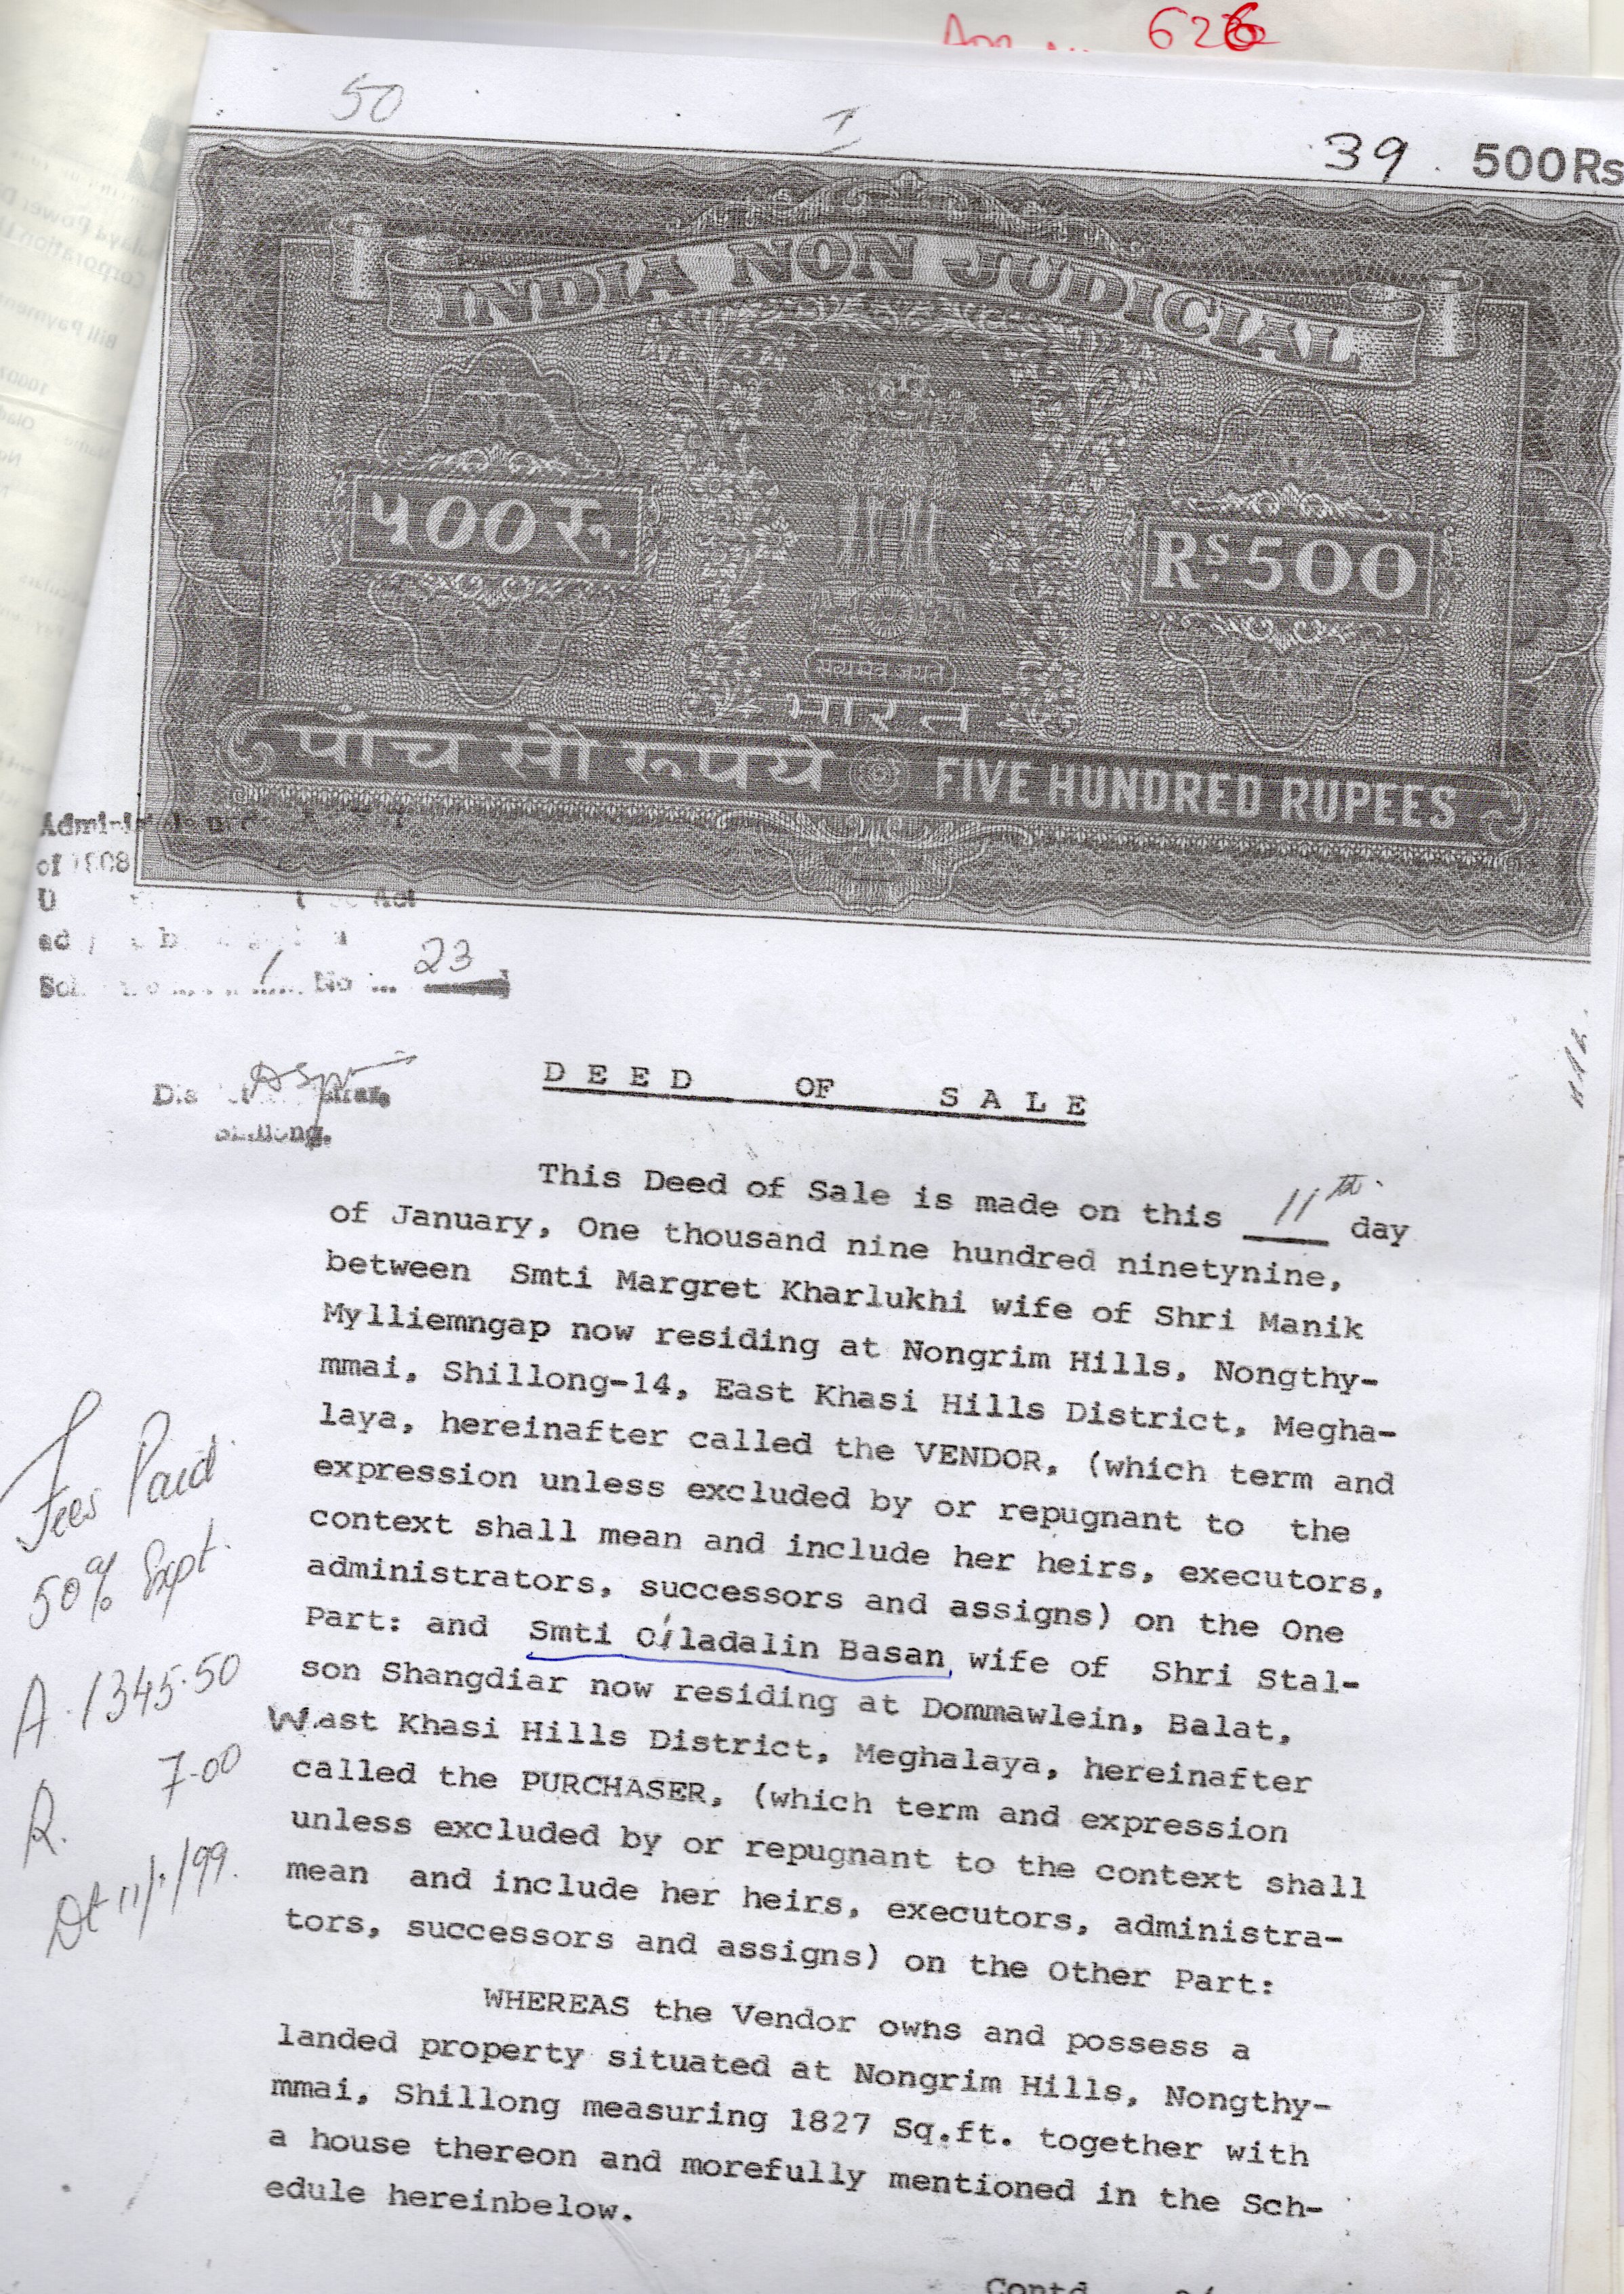 626
50
39 500Rs
INDIA NON JUDICIAL
५00 रू.
Rs. 500
सत्यमेव जयते
भारत
पाँच सौ रूपये FIVE HUNDRED RUPEES
of 1908
Act
No ... 23
Shillong.
DEED OF SALE
This Deed of Sale is made on this 11th day
of January, One thousand nine hundred ninetynine,
between Smti Margret Kharlukhi wife of Shri Manik
Mylliemngap now residing at Nongrim Hills, Nongthy-
mmai, Shillong-14, East Khasi Hills District, Megha-
laya, hereinafter called the VENDOR, (which term and
expression unless excluded by or repugnant to the
context shall mean and include her heirs, executors,
administrators, successors and assigns) on the One
Part: and Smti Oiladalin Basan wife of Shri Stal-
son Shangdiar now residing at Dommawlein, Balat,
West Khasi Hills District, Meghalaya, hereinafter
called the PURCHASER, (which term and expression
unless excluded by or repugnant to the context shall
mean and include her heirs, executors, administra-
tors, successors and assigns) on the Other Part:
WHEREAS the Vendor owns and possess a
landed property situated at Nongrim Hills, Nongthy-
mmai, Shillong measuring 1827 Sq.ft. together with
a house thereon and morefully mentioned in the Sch-
edule hereinbelow.
Contd
Fees Paid
50% Expt.
A. 1345.50
R. 7-00
Dt 11/1/99.